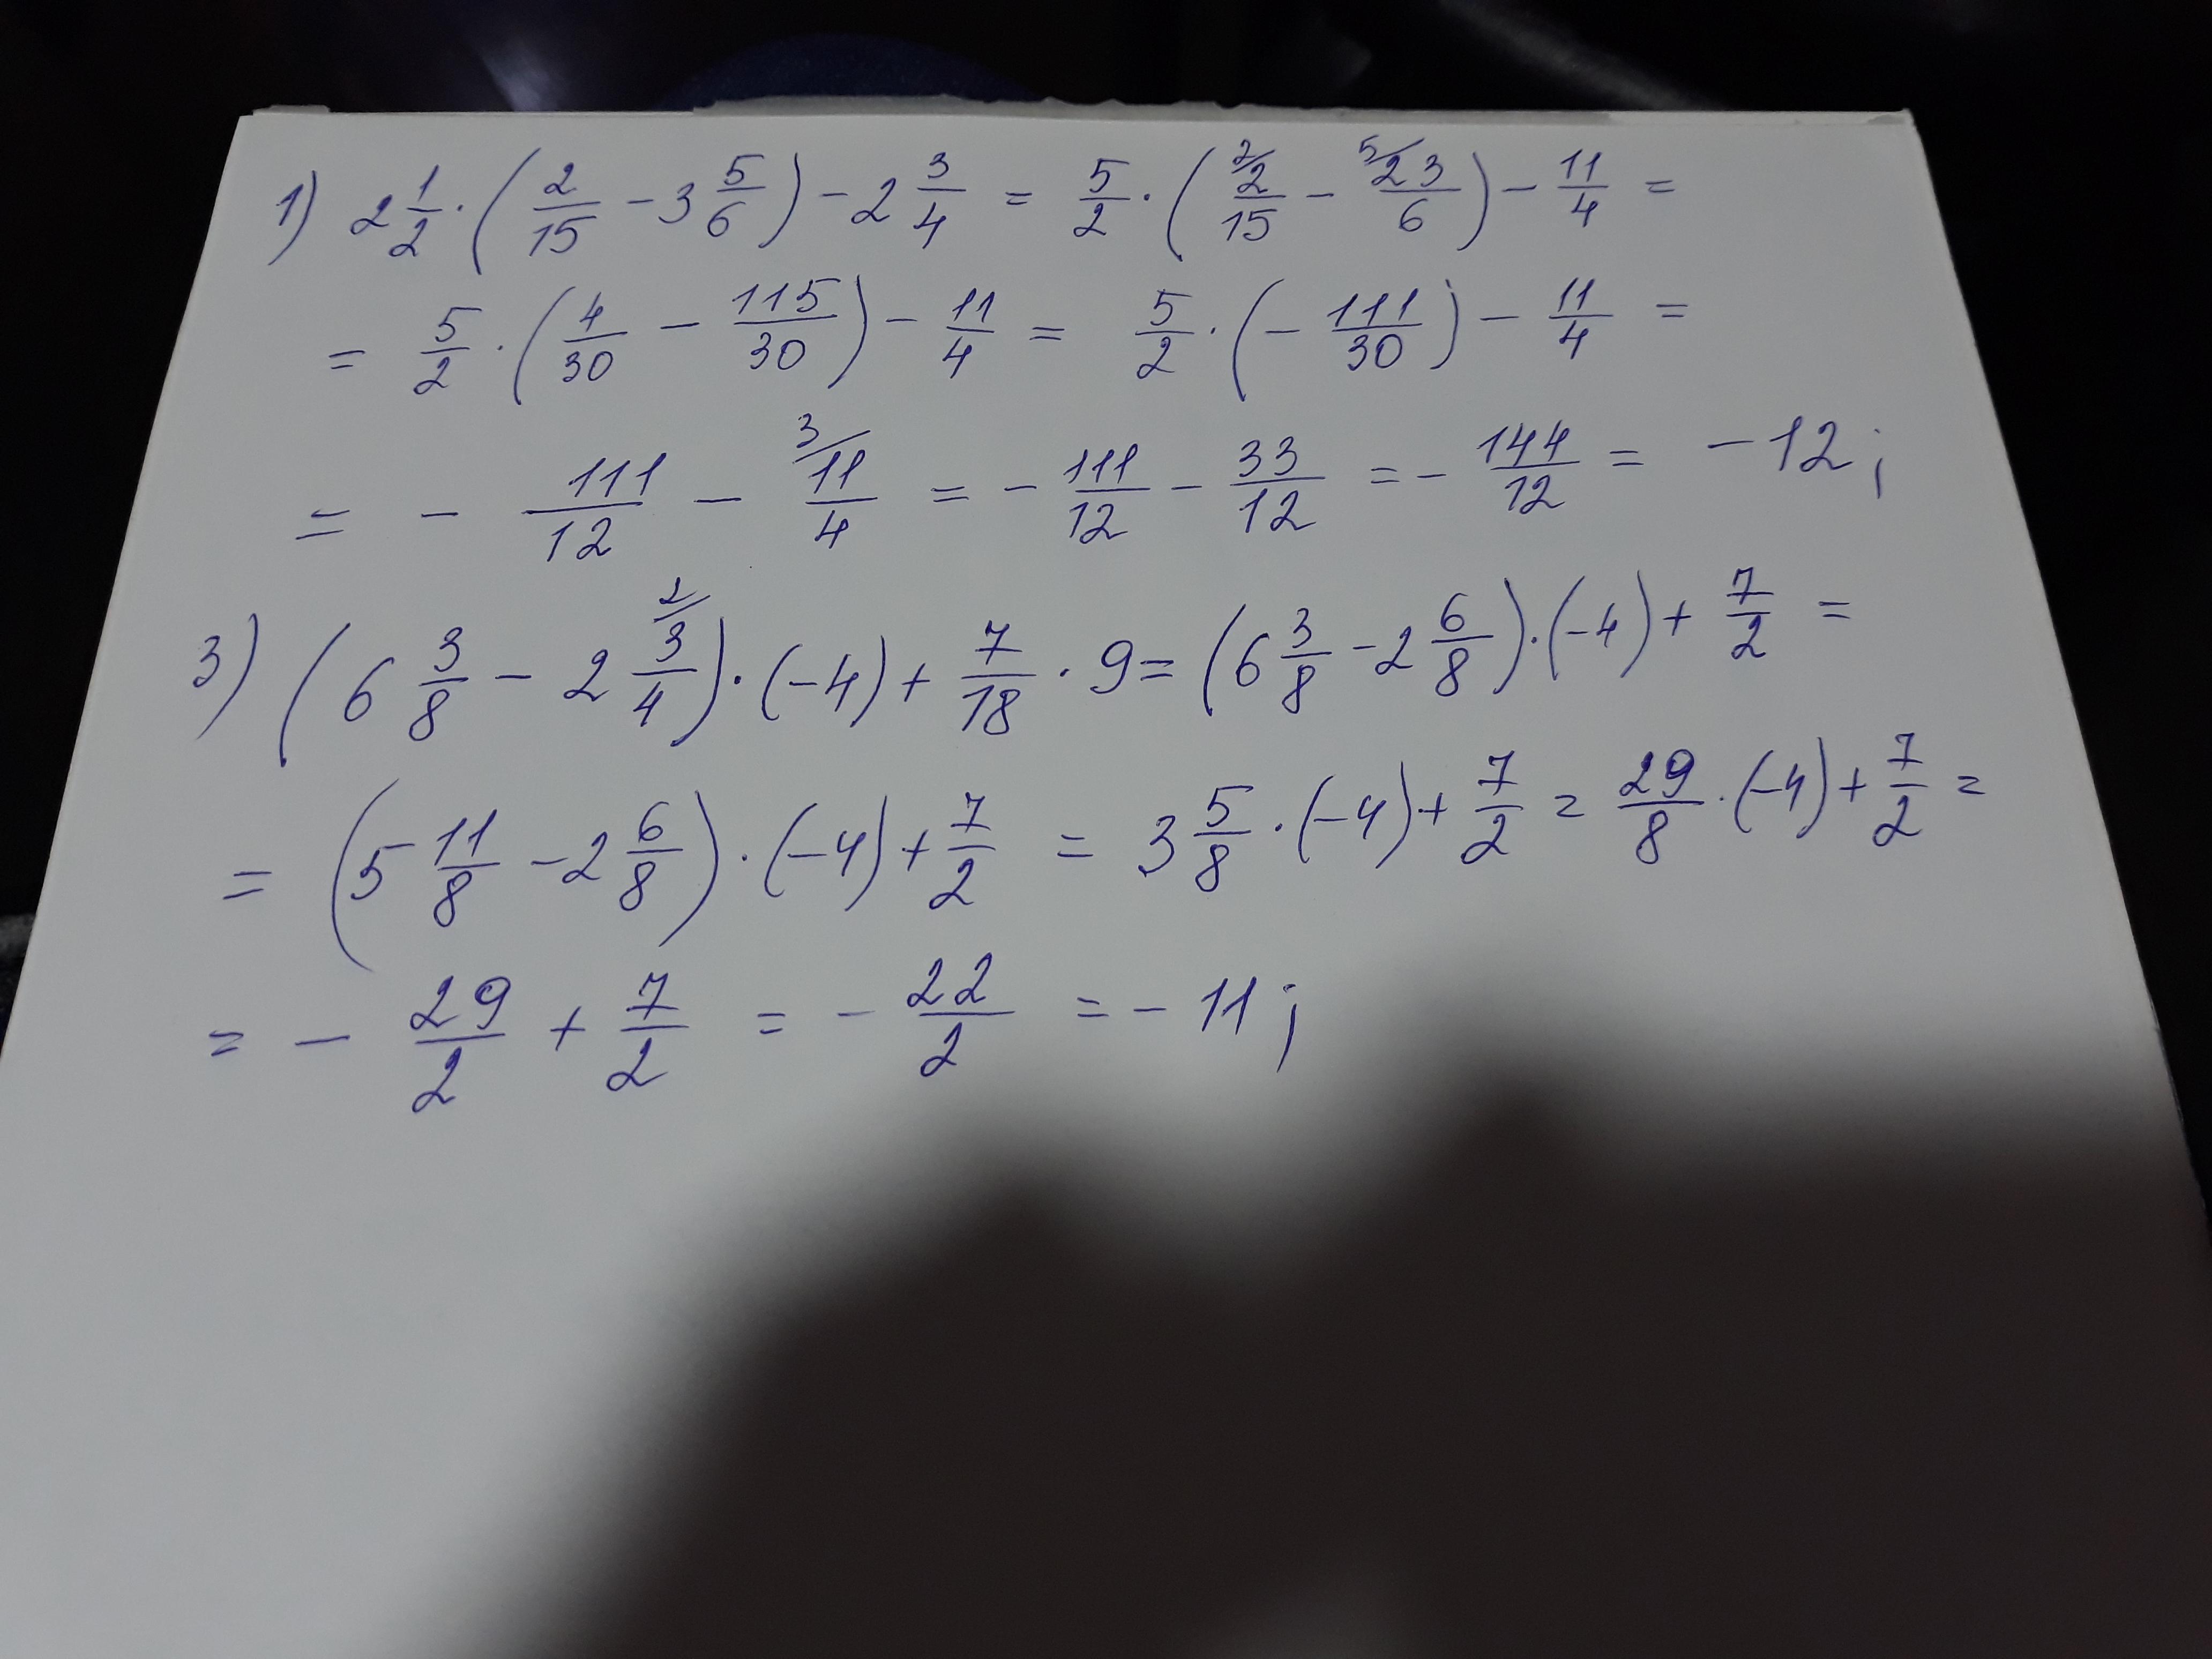 1) 2 1/2 · (2/15 - 3 5/6) - 2 3/4 = 5/2 · (2/ 2/15 - 5/ 23/6) - 11/4 =
= 5/2 · (4/30 - 115/30) - 11/4 = 5/2 · (- 111/30) - 11/4 =
= - 111/12 - 3/ 11/4 = - 111/12 - 33/12 = - 144/12 = - 12;
3) (6 3/8 - 2 2/ 3/4) · (-4) + 7/18 · 9 = (6 3/8 - 2 6/8) · (-4) + 7/2 =
= (5 11/8 - 2 6/8) · (-4) + 7/2 = 3 5/8 · (-4) + 7/2 = 29/8 · (-4) + 7/2 =
= - 29/2 + 7/2 = - 22/2 = - 11;